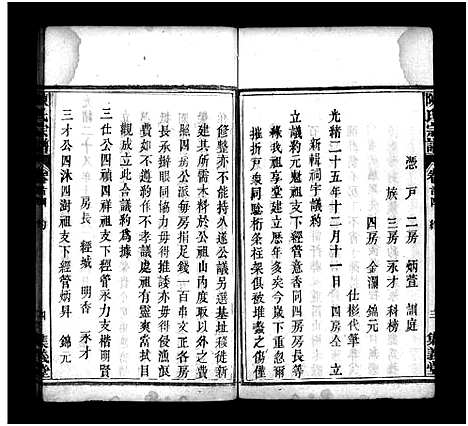 憑 戶 二房 炳萱 訓庭
族 三房 永才 科榜
四房 金瀾 錦元
仕彬代筆
光緒二十五年十二月十一日 四房仝立
新輯祠宇議約
立議約元魁祖支下經管意香同四房房長等
緣我祖享堂建立歷年多矣今歲下重忽爾
摧折戶衆同驗桁条柱架俱被堆蠹之傷但
詹整亦不能持久遂公議另選基址移徙新
建其所需木料於公祖山內祖護而雜用則
照四房公派每房指足錢一百串文正各房
房長齊心協力毋得推諉毋得懷私以傷用
費如不遵約作不孝議處祖有靈奭當拭目
觀成立此合議約爲據
房長 經城 明香 永才
三仕公四禎四祥祖支下經管永力支楷明賢
三才公四沐四澍祖支下經管炳昇 錦元
集義堂